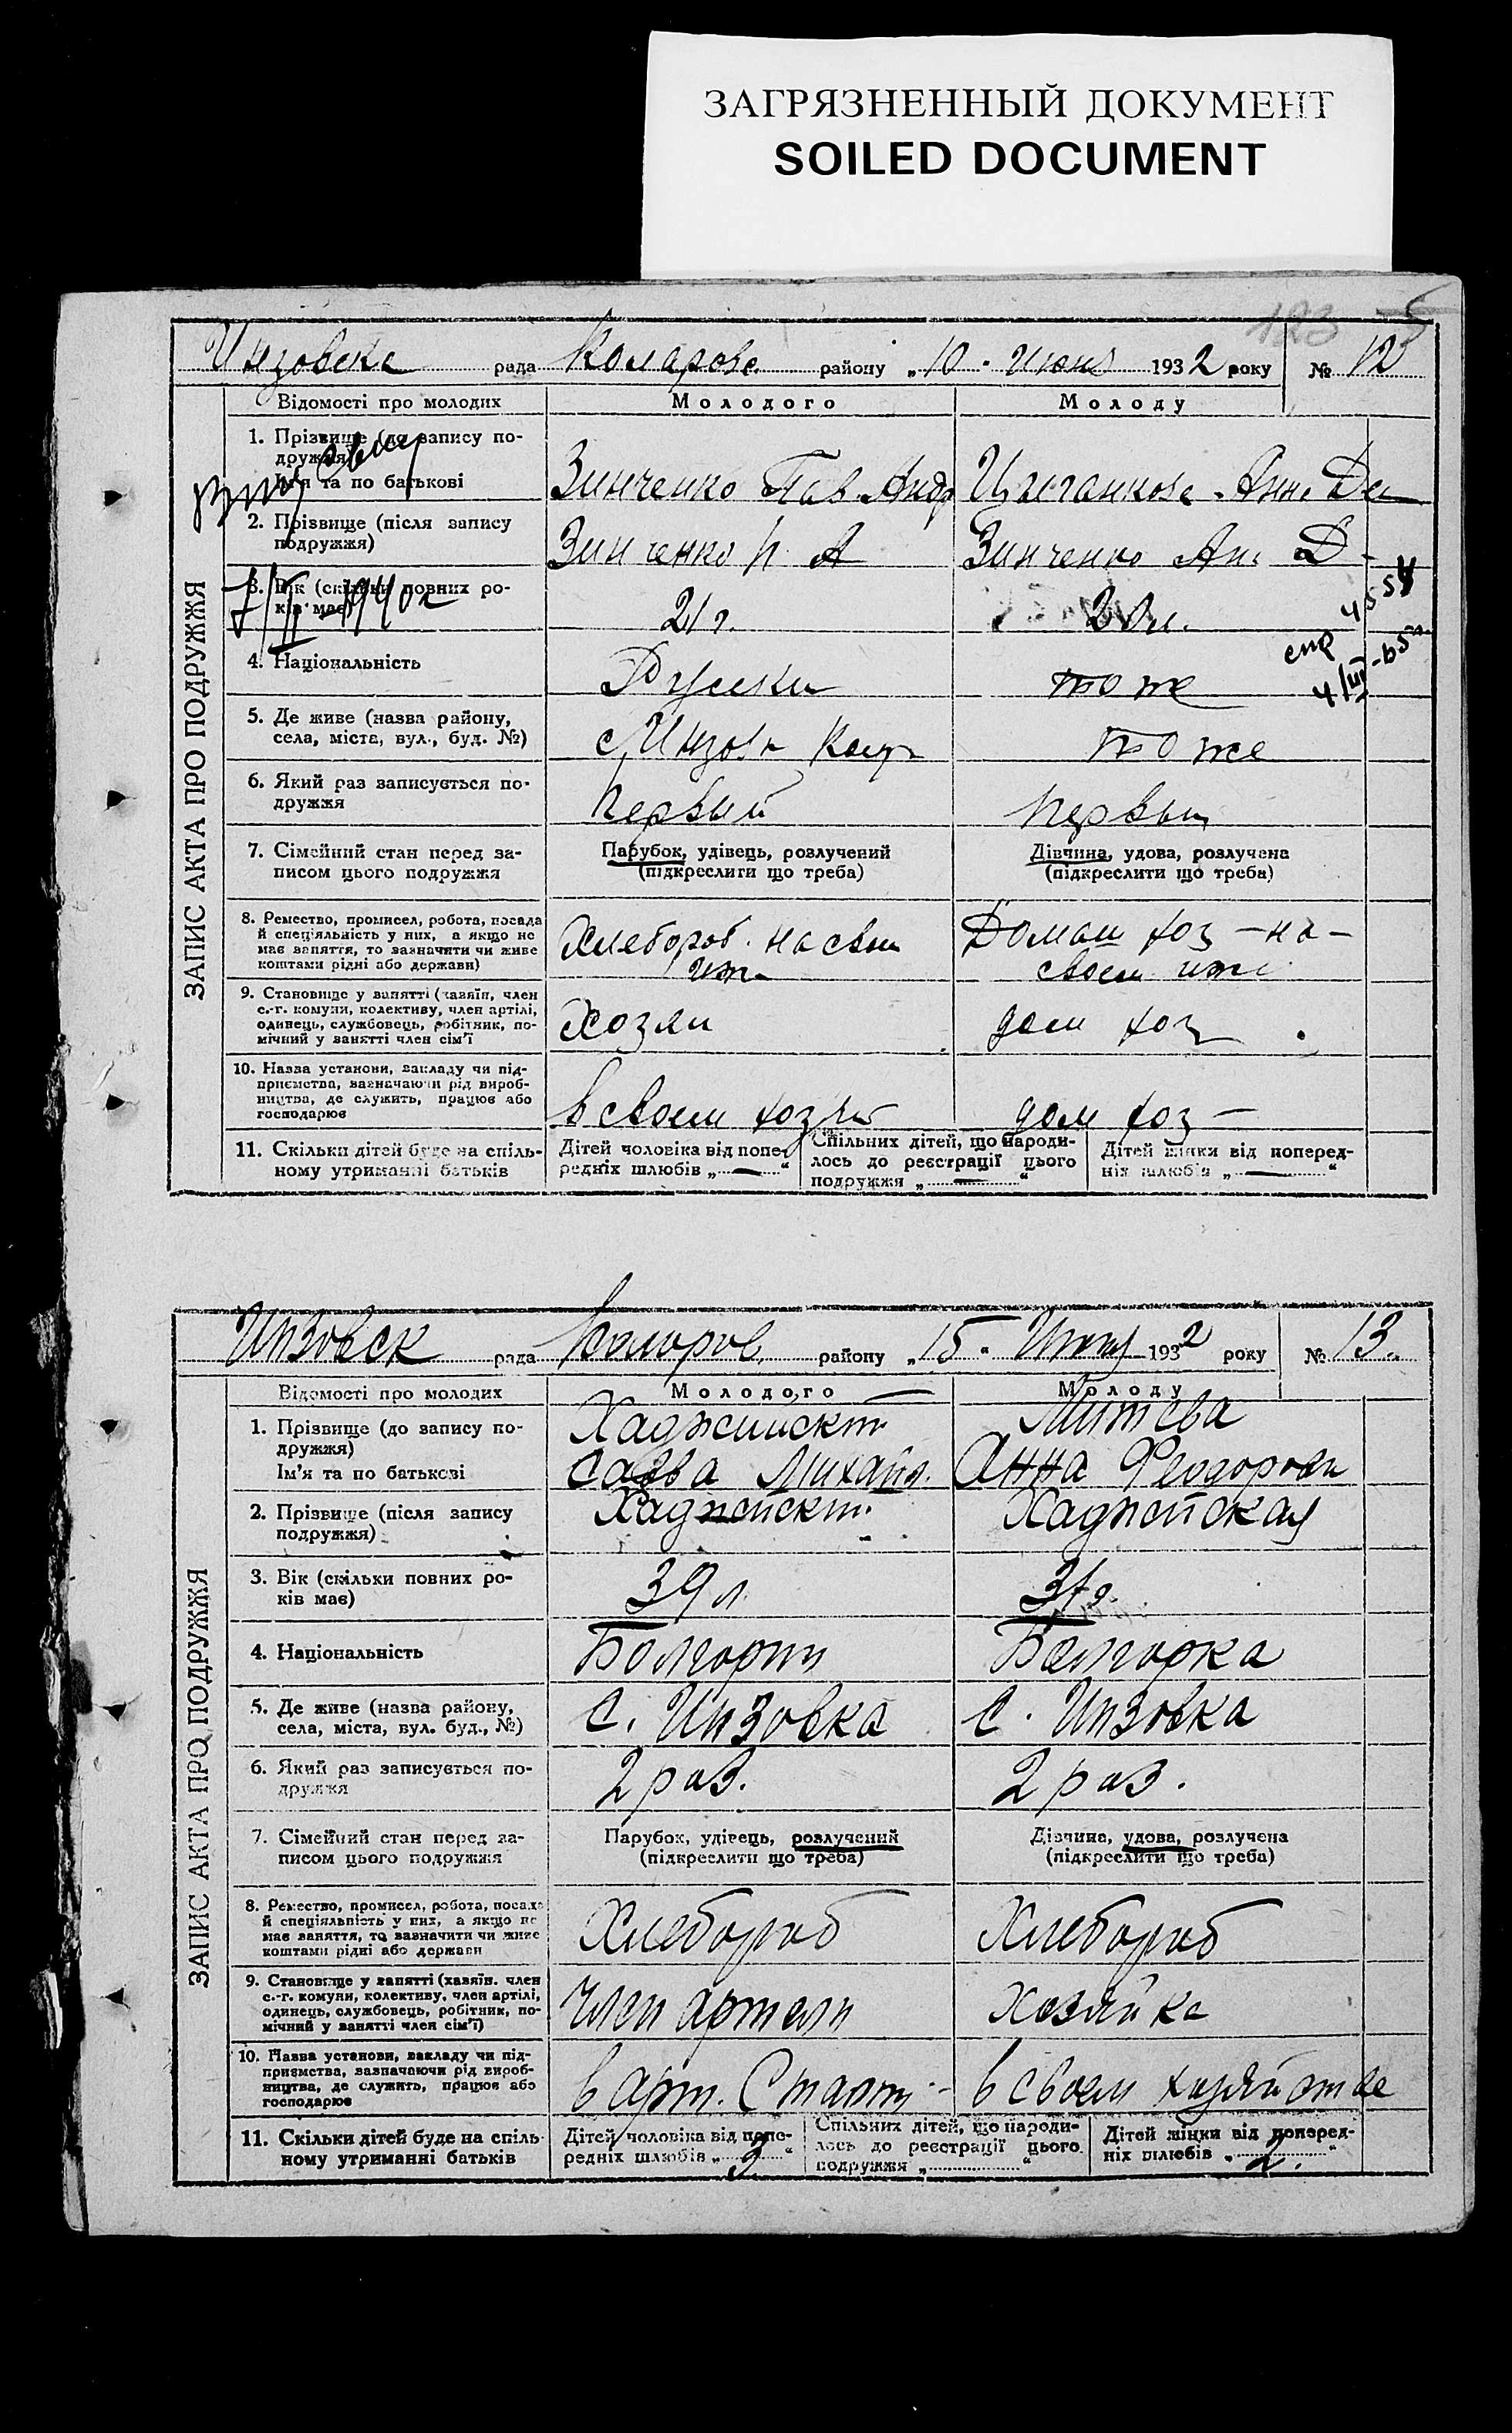 ЗАГРЯЗНЕННЫЙ ДОКУМЕНТ
SOILED DOCUMENT
123
рада Коларовс. району „10" Июня 1932 року № 12
ЗАПИС АКТА ПРО ПОДРУЖЖЯ
Відомості про молодих Молодого Молоду
1. Прізвище (до запису по-
дружжя)
Ім'я та по батькові Зинченко Пав. Андр Цыганкова Анн. Де
2. Прізвище (після запису
подружжя) Зинченко П. А Зинченко Ан. Д-
3. Вік (скільки повних ро-
ків має) 21 г. 20 л.
1940г
4. Національність Русски тоже
5. Де живе (назва району,
села, міста, вул., буд. №) с. тоже
6. Який раз записується по-
дружжя Первый Первый
7. Сімейний стан перед за-
писом цього подружжя Парубок, удівець, розлучений
(підкреслити що треба) Дівчина, удова, розлучена
(підкреслити що треба)
8. Ремество, промисел, робота, посада
й спеціяльність у них, а якщо не
має заняття, то зазначити чи живе
коштами рідні або держави) Хлебороб. на свои Домаш хоз – на –
своем иж.
9. Становище у занятті (хазяїн, член
с.-г. комуни, колективу, член артілі,
одинець, службовець, робітник, по-
мічний у занятті член сім'ї Хозяи дом хоз
10. Назва установи, закладу чи під-
приємства, зазначаючи рід вироб-
ництва, де служить, працює або
господарює в своем хозяй дом хоз –
11. Скільки дітей буде на спіль-
ному утриманні батьків Дітей чоловіка від попе-
редніх шлюбів „ — " Спільних дітей, що народи-
лось до реєстрації цього
подружжя „ — " Дітей жінки від поперед-
ніх шлюбів „ — "
Инзовск рада Коларов. району „15" 1932 року № 13.
ЗАПИС АКТА ПРО ПОДРУЖЖЯ
Відомості про молодих Молодого Молоду
1. Прізвище (до запису по-
дружжя) Хаджийски Митева
Ім'я та по батькові Савва Михайл. Анна Феодоровн
2. Прізвище (після запису
подружжя) Хаджийски. Хаджийская
3. Вік (скільки повних ро-
ків має) 39 л. 31 г.
4. Національність Болгарин Болгарка
5. Де живе (назва району,
села, міста, вул. буд., №) с. Инзовка с. Инзовка
6. Який раз записується по-
дружжя 2 раз. 2 раз.
7. Сімейний стан перед за-
писом цього подружжя Парубок, удівець, розлучений
(підкреслити що треба) Дівчина, удова, розлучена
(підкреслити що треба)
8. Ремество, промисел, робота, посада
й спеціяльність у них, а якщо не
має заняття, то зазначити чи живе
коштами рідні або держави Хлебороб Хлебороб
9. Становище у занятті (хазяїн. член
с.-г. комуни, колективу, член артілі,
одинець, службовець, робітник, по-
мічний у занятті член сім'ї) Член артели Хозяйка
10. Назва установи, закладу чи під-
приємства, зазначаючи рід вироб-
ництва, де служить, працює або
господарює в арт. в своем хозяйстве
11. Скільки дітей буде на спіль-
ному утриманні батьків Дітей чоловіка від попе-
редніх шлюбів „ 3. " Спільних дітей, що народи-
лось до реєстрації цього
подружжя „ " Дітей жінки від поперед-
ніх шлюбів „ 2. "